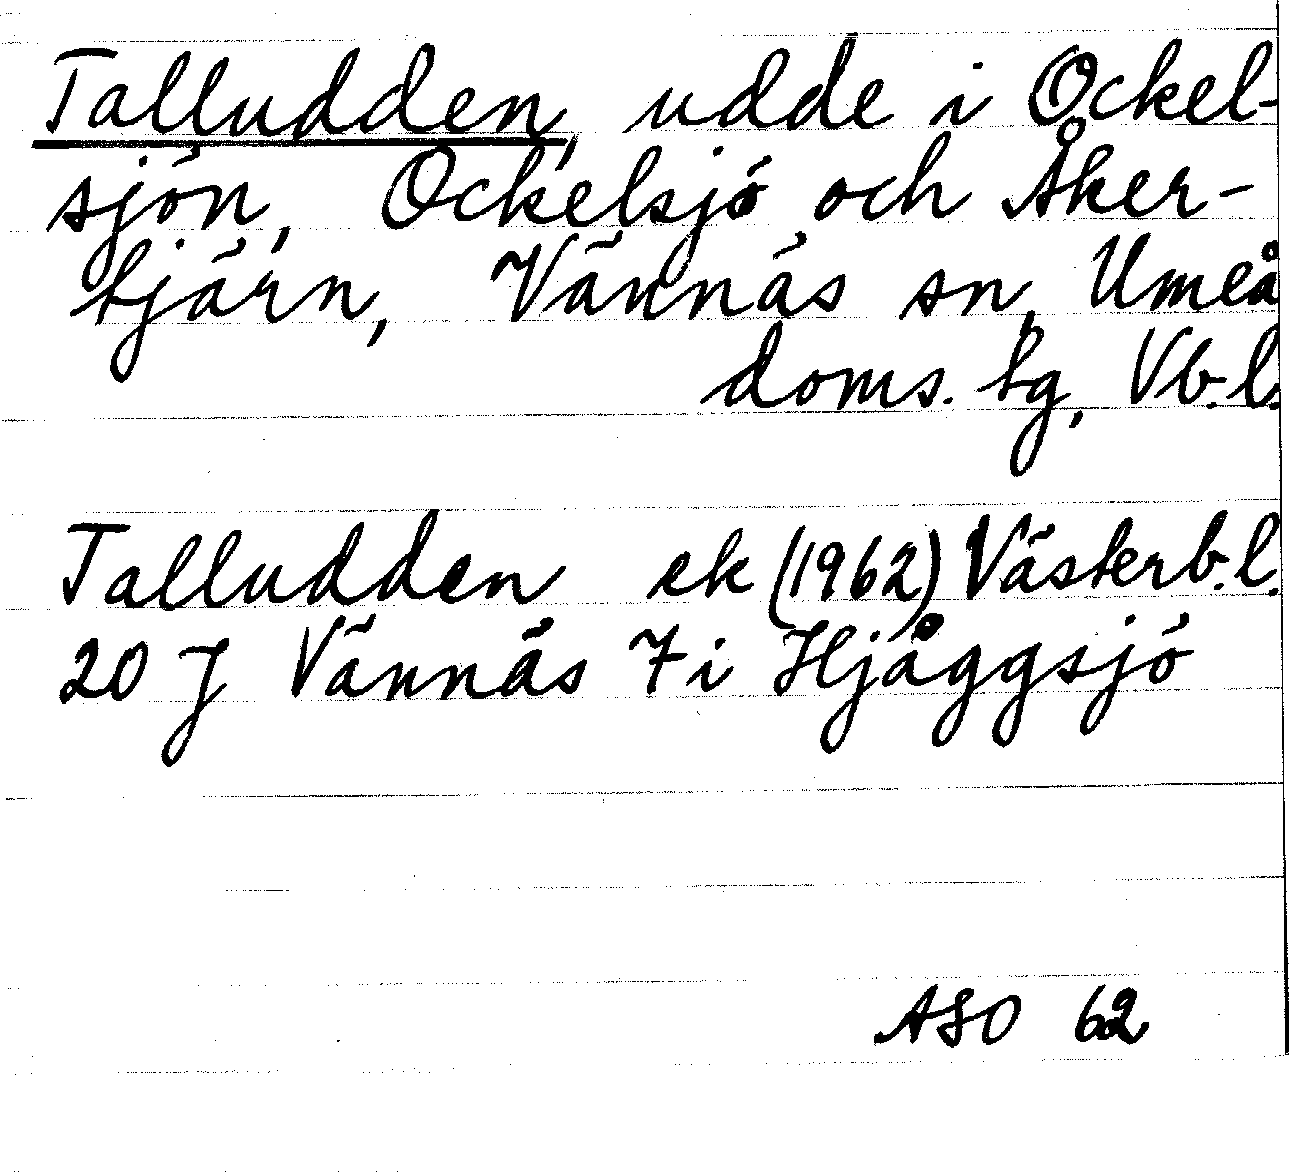 Talludden, udde i Ockel-
sjön, Ockelsjö och Åker-
tjärn, Vännäs sn, Umeå
doms. tg, Vb. l.
Talludden ek (1962) Västerb. l.
20 J Vännäs 7 i Hjåggsjö
ASO 62